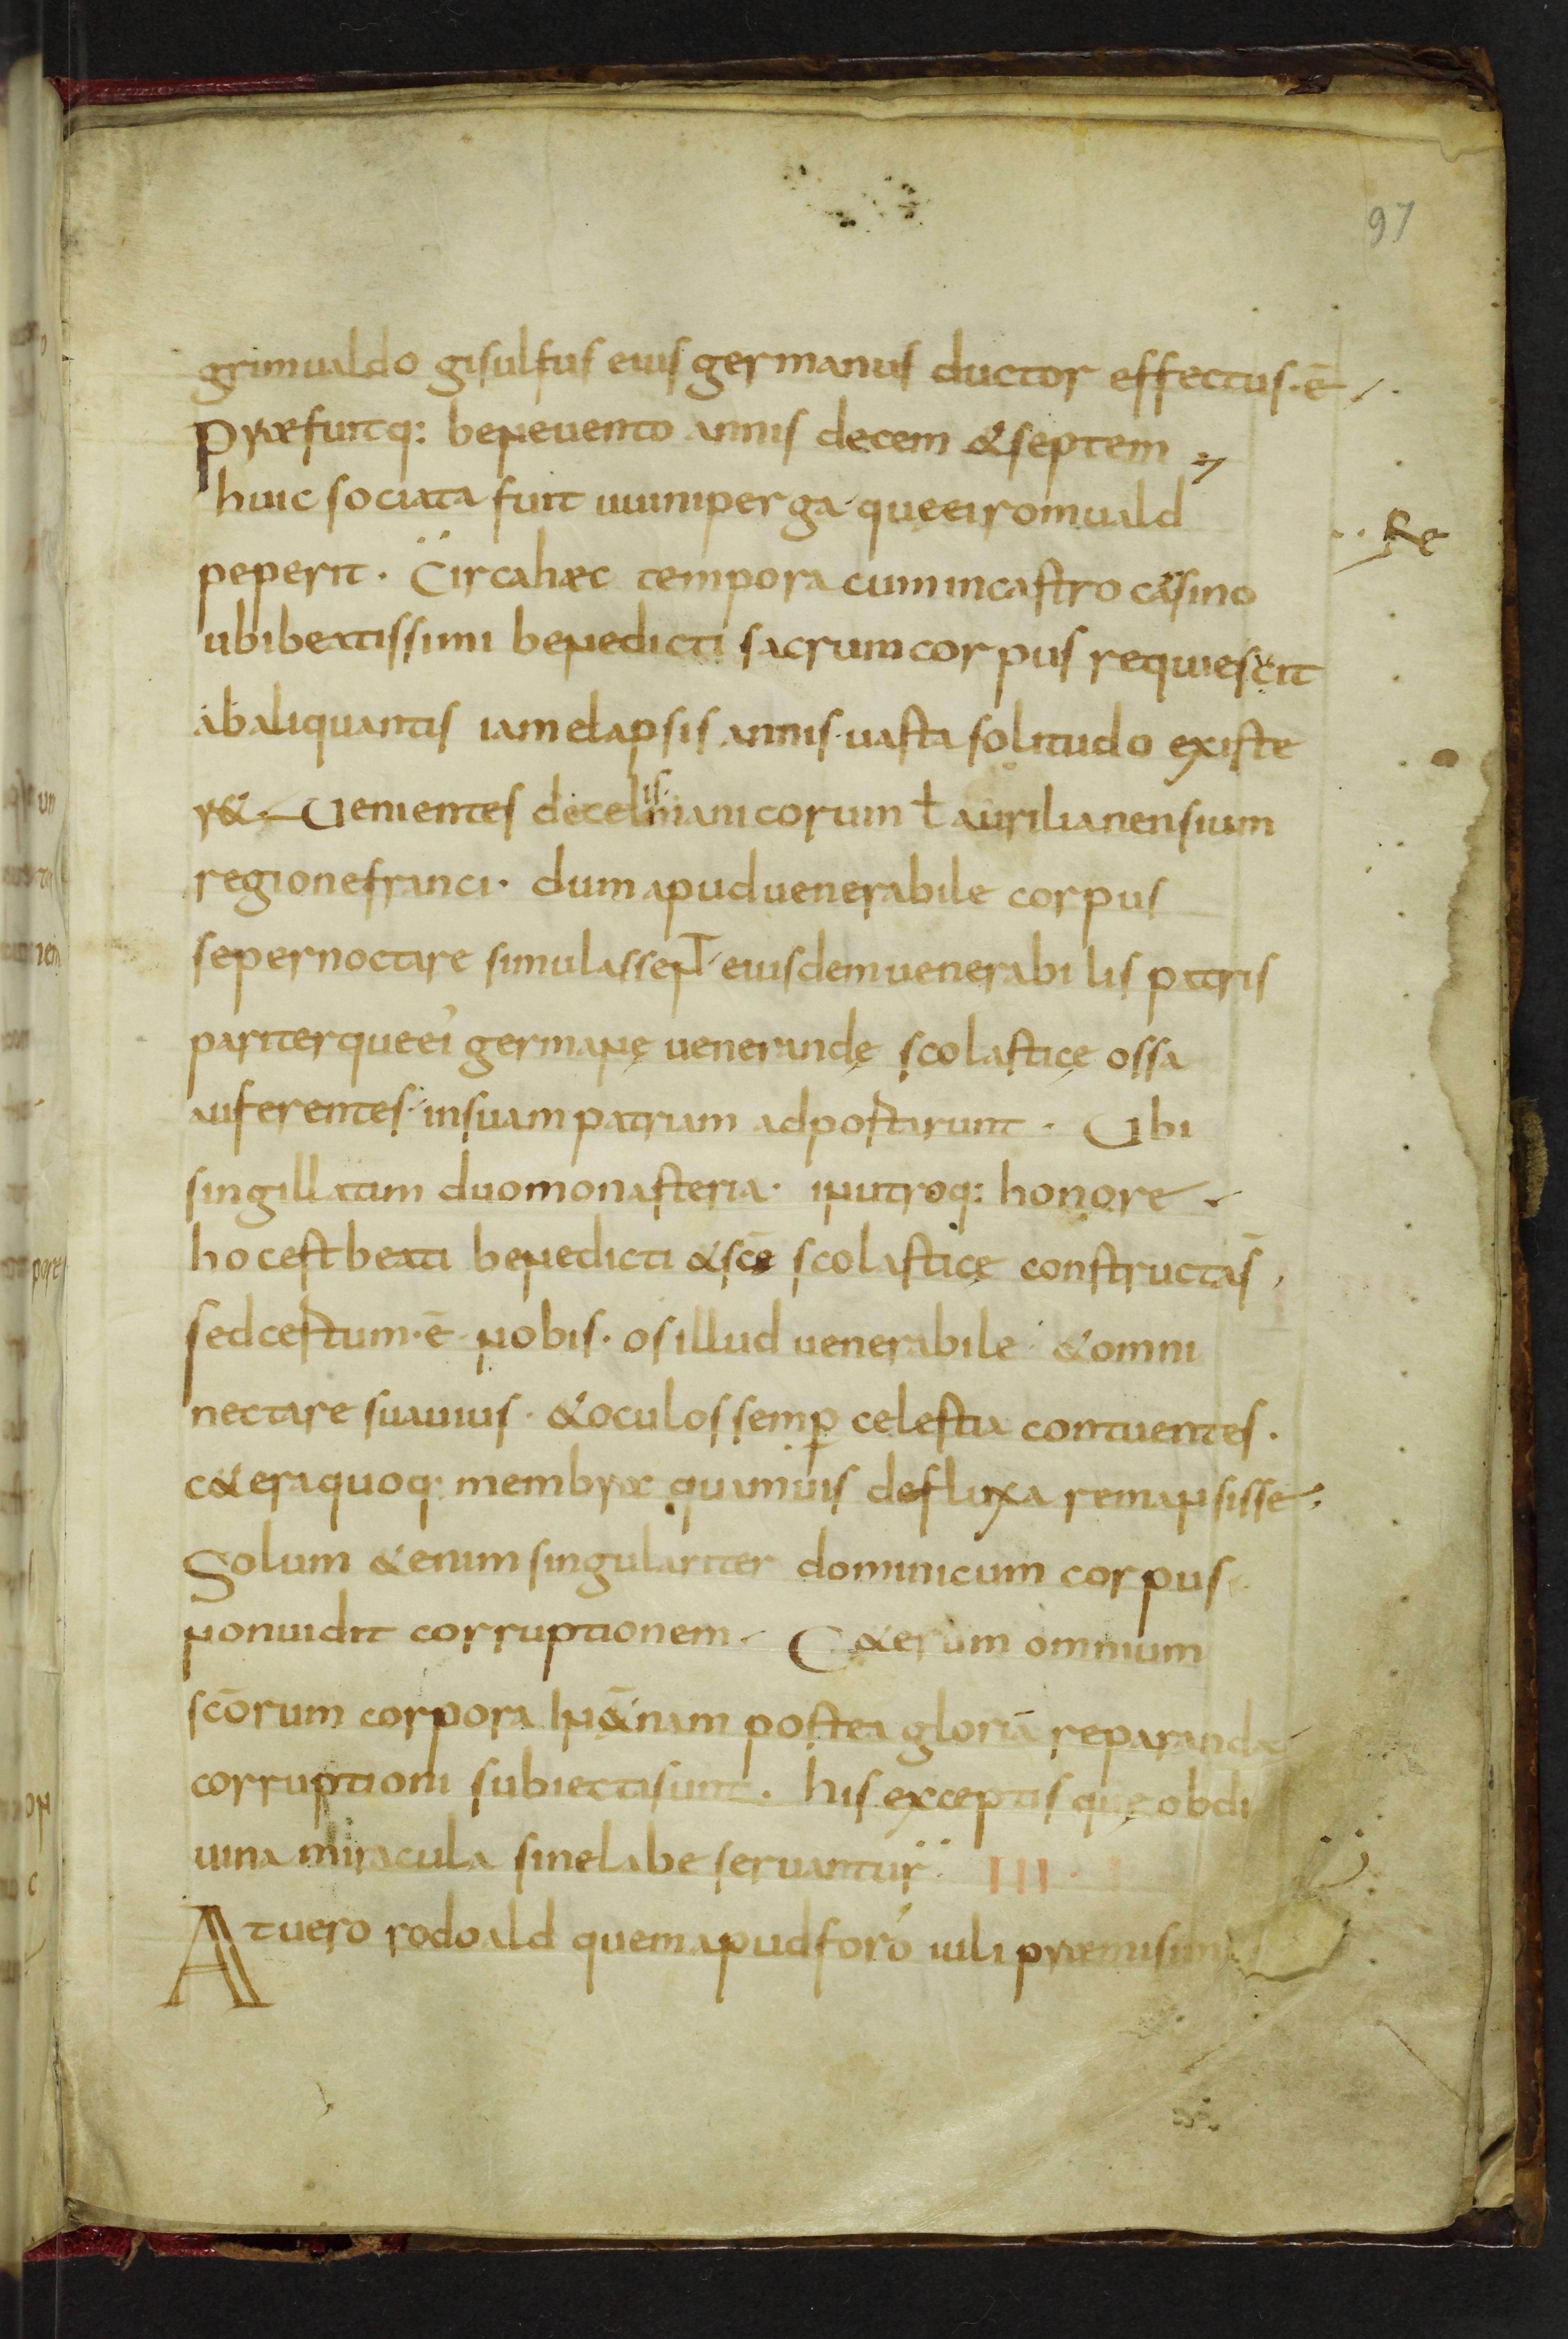 97
grimualdo gisulfus eius germanus ductor effectus·ē
Praefuitq: beneuento annis decem &septem
huic sociata fuit uuiniperga quęeiromuald
peperit. Circahæc tempora cumincastro casino
ubibeatissimi benedicti sacrumcorpus requiescit
abaliquantis iamelapsis annis·uasta solitudo existe
r&. Uenientes decelmanicorum ł aurilianensium
regionefranci· dumapuduenerabile corpus
sepernoctare simulassent eiusdemuenerabilis patris
pariterqueei' germanę uenerandę scolasticę ossa
auferentes·insuampatriam adpostarunt · Ubi
singillatim duomonasteria· inutroq: honore
hocestbeati benedicti &scē scolasticę constructas̄
sedcestum·ē·nobis·osillud uenerabile &omni
nectare suauius·&oculossemp̲ celestia contuentes·
c&eraquoq: membra quamuis defluxa remansisse
Solum &enimsingulariter dominicum corpus
nonuidit corruptionem. C&erum omnium
scōrum corpora In&̄nam postea gloriā reparanda
corruptioni subiectasunt. his exceptis quęobdi
uina miracula sinelabe seruantur III·
Atuero rodoald quemapudforo' iuli præmisim
Re